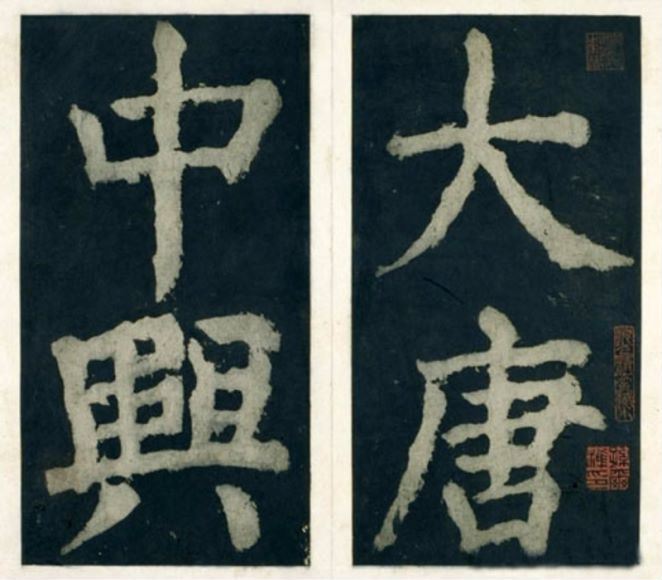 大唐
中興